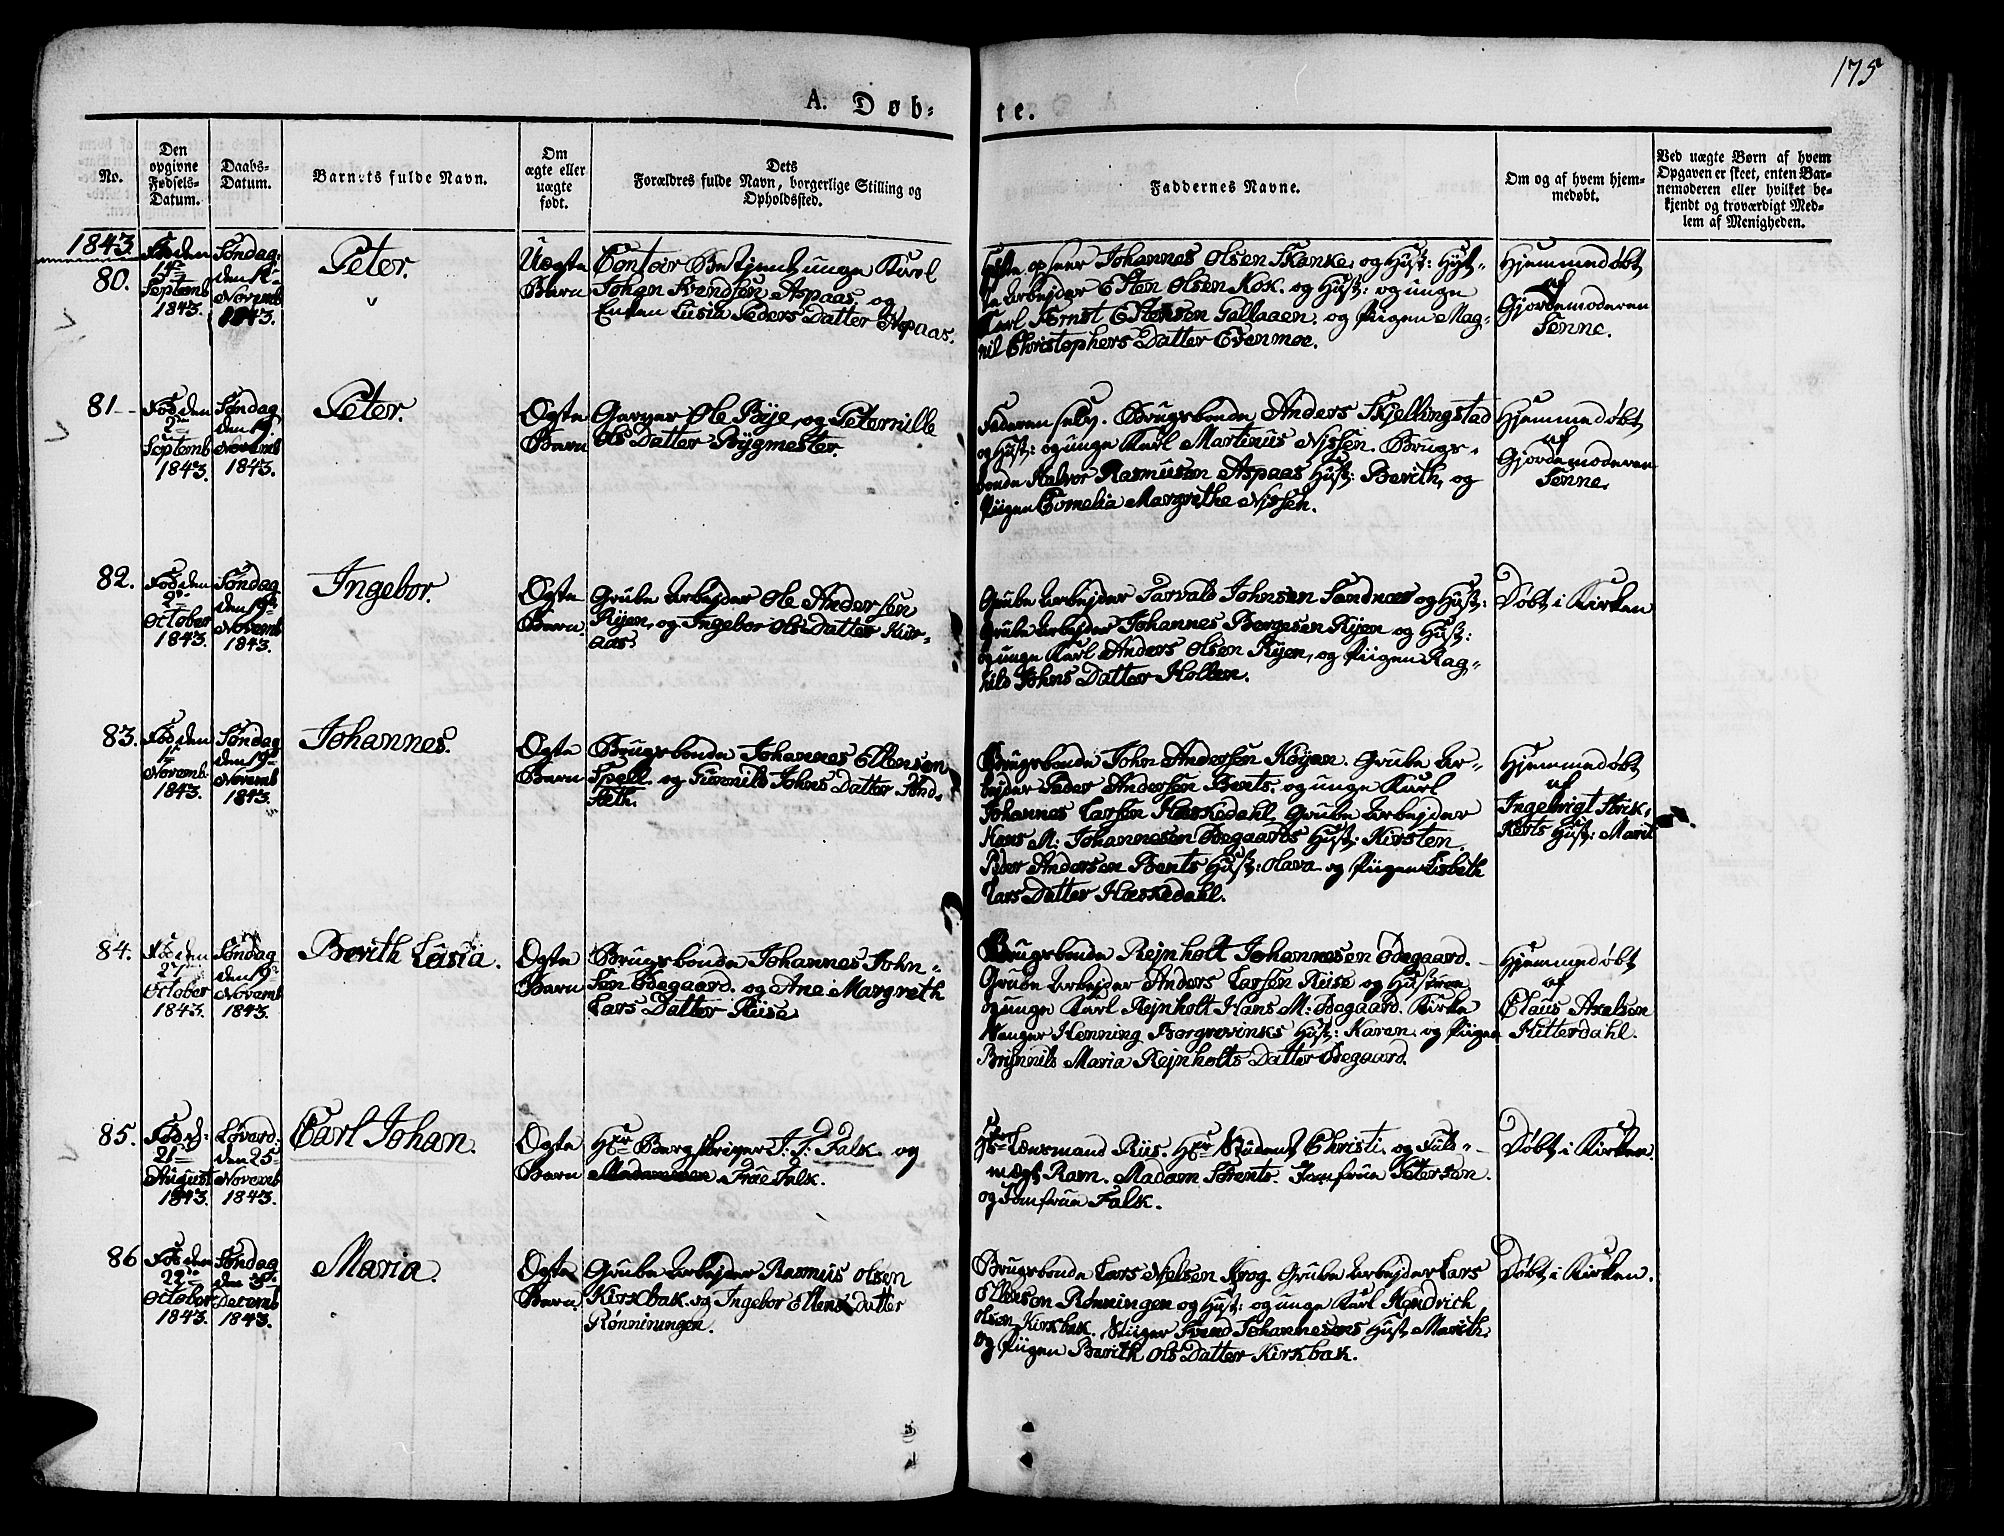 175
A. Døb-
te.
No.
Den opgivne Fødsels-Datum.
Daabs-Datum.
Barnets fulde Navn.
Om ægte eller uægte født.
Dets Forældres fulde Navn, borgerlige Stilling og Opholdssted.
Faddernes Navne.
Om og af hvem hjem-medøbt.
Ved uægte Børn af hvem Opgaven er skeet, enten Bar-nemoderen eller hvilket be-kjendt og troværdigt Med-lem af Menigheden.
1843
80.
Født den
Septemb
1843.
Søndag
den 19de
Novemb
1843.
Peter.
Uægte
Barn
Contoir Betjent unge Karl
Johan Svendsen Aspaas og
Enken Lusia Peders Datter Aspaas.
opseer Johannes Olsen Skanke og Hust: Hyt-
te Arbejder Esten Olsen Kok. og Hust: og unge
Karl Ernst Estensen Gallaaen. og Piigen Mag-
nil Christophers Datter Evenmoe.
Hjemmedøbt
af
Gjordemoderen
Tenne.
81
Født den
2de
Septemb
1843.
Søndag
den 19de
Novemb
1843.
Peter.
Ægte
Barn
Garver Ole Bye, og Peternille
Ols Datter Bygmester.
Faderen selv. Brugsbonde Anders Skjellingstad
og Hust: og unge Karl Martinus Nissen. Brugs-
bonde Halvor Rasmusen Aspaas Hust: Berith, og
Piigen Cornelia Margrethe Nissen.
Hjemmedøbt
af
Gjordemoderen
Tenne.
82.
Født den
2de
October
1843.
Søndag
den 19de
Novemb
1843.
Ingebor.
Ægte
Barn.
Grube Arbejder Ole Andersen
Ryen, og Ingebor Ols Datter Kur-
aas.
Grube Arbejder Tarvald Johnsen Sandnæs og Hust:
Grube Arbejder Johannes Børgesen Ryen og Hust:
og unge Karl Anders Olsen Ryen, og Piigen Rag-
hild Johns Datter Holden.
Døbt i Kirken
83.
Født den
1de
Novemb
1843.
Søndag
den 19de
Novemb
1843.
Johannes.
Ægte
Barn
Brugsbonde Johannes Ellensen
Spell og Gunnild Johns Datter Sund-
seth.
Brugsbonde John Andersen Røyen. Grube Ar-
bejder Peder Andersen Bents. og unge Karl
Johannes Larsen Hæskedahl. Grube Arbejder
Hans M: Johannesen Ødegaards Hust: Kirsten.
Peder Andersen Bents Hust: Olava og Piigen Lisbeth
Lars Datter Hæskedahl.
Hjemmedøbt
af
Hust: Marit
84.
Født den
27de
October
1843.
Søndag
den 19de
Novemb
1843.
Berith Lusia.
Ægte
Barn
Brugsbonde Johannes John-
sen Ødegaard. og Ane Margreth
Lars Datter Ruse
Brugsbonde Rejnholt Johannesen Ødegaard.
Grube Arbejder Anders Larsen Ruse og Hustrue
og unge Karl Rejnholt Hans M: Ødegaard. Kirke
Sanger Henning Borgrevinks Hust: Karen og Piigen
Brynnild Maria Rejnholts Datter Ødegaard.
Hjemmedøbt
af
Claus Axelsen
Hitterdahl.
85.
Født d:
21de
August
1843.
Løverd:
den 25de
Novemb
1843.
Carl Johan.
Ægte
Barn
Hr Bergskriver J: J: Falk og
Frue Falk.
Hr Lensmand Riis. Hr Student Christi. og Fuld-
mægt Ram. Madam Sørents. Jomfrue Petersen.
og Jomfrue Falk.
Døbt i Kirken.
86
Født den
22de
October
1843.
Søndag
den 3de
Decemb
1843.
Maria.
Ægte
Barn
Grube Arbejder Rasmus Olsen
Kirkbak. og Ingebor Ellens Datter
Rønniningen.
Brugsbonde Lars Nielsen Krog. Grube Arbejder Lars
Ellenson Rønningen og Hust: og unge Karl Hendrich
Olsen Kirkbak. Svend Johannesens Hust Marith.
og Piigen Berith Ols Datter Kirkbak.
Døbt i Kirken.